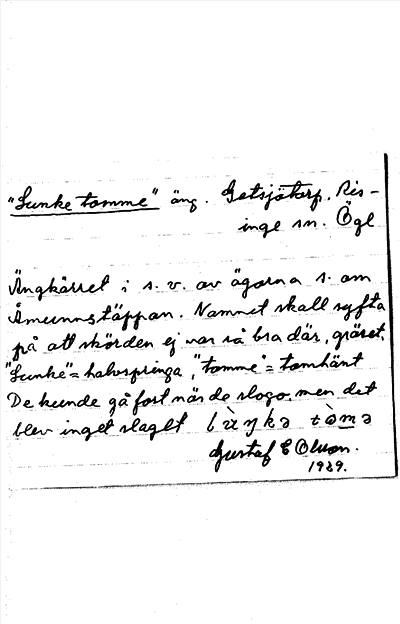 "Lunke tomme" äng. Getsjötorp. Ris-
inge sn. Ögl
Ängkärret i s. v. av ägorna s. om
Åmunnstäppan. Namnet skall syfta
på att skörden ej var så bra där, gräset.
"Lunke" = halvspringa, "tomme" = tomhänt
De kunde gå fort när de slogo, men det
blev inget slaget
Gustaf E Olsson.
1929.